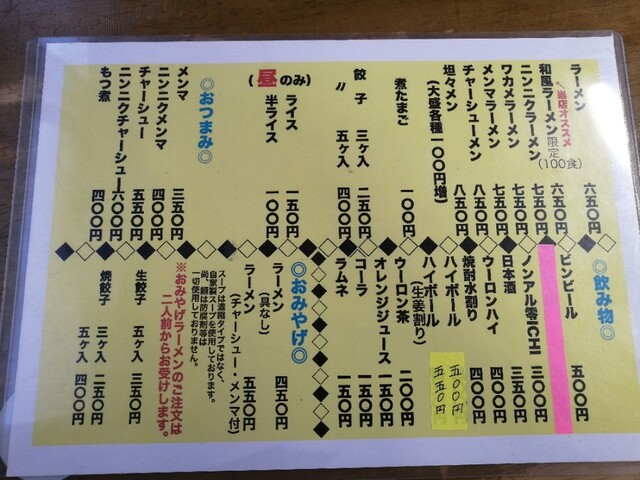 ラーメン 六五〇円
＼当店オススメ／
和風ラーメン 限定(100食) 六五〇円
ニンニクラーメン 七五〇円
ワカメラーメン 七五〇円
メンマラーメン 七五〇円
チャーシューメン 八五〇円
坦々メン 八五〇円
(大盛各種一〇〇円増)
煮たまご 一〇〇円
餃子 三ヶ入 二五〇円
〃 五ヶ入 四〇〇円
(昼のみ)
ライス 一五〇円
半ライス 一〇〇円
◎おつまみ◎
メンマ 三五〇円
ニンニクメンマ 四〇〇円
チャーシュー 五五〇円
ニンニクチャーシュー 六〇〇円
もつ煮 四〇〇円
◎飲み物◎
ビンビール 五〇〇円
ノンアル零ICHI 三〇〇円
日本酒 三五〇円
ウーロンハイ 四〇〇円
焼酎水割り 四〇〇円
ハイボール 五〇〇円
ハイボール(生姜割り) 五五〇円
ウーロン茶 二〇〇円
オレンジジュース 一五〇円
コーラ 一五〇円
ラムネ 一五〇円
◎おみやげ◎
ラーメン(具なし) 四五〇円
ラーメン(チャーシュー・メンマ付) 五五〇円
スープは濃縮タイプではなく、
自家製スープを使用しております。
尚、麺は防腐剤等は
一切使用しておりません。
※おみやげラーメンのご注文は
二人前からお受けします。
生餃子 五ヶ入 三五〇円
焼餃子 三ヶ入 二五〇円
五ヶ入 四〇〇円